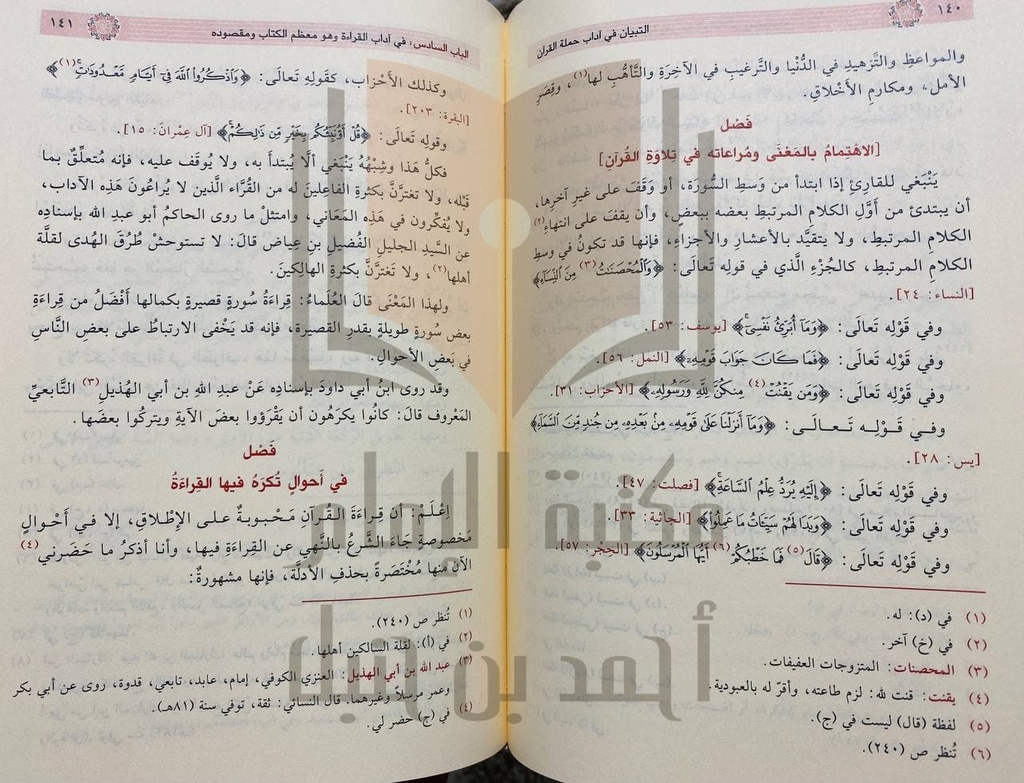 ١٤٠
التبيان في آداب حملة القرآن
والمواعظِ والتَّزهيدِ في الدُّنْيا والتَّرغيبِ في الآخِرَةِ والتَّأَهُّبِ لها(١)، وقِصَرِ
الأمل، ومكارِمِ الأَخْلاقِ.
فَصْل
[الاهْتِمامُ بالمَعْنَى ومُراعاته في تِلاوَةِ القُرآنِ]
يَنْبَغي للقارِئِ إذا ابتدأ من وَسطِ السُّورَة، أو وَقَفَ على غيرِ آخرِها،
أن يبتدئ من أوَّلِ الكلامِ المرتبطِ بعضه ببعضٍ، وأن يقفَ على انتهاءِ(٢)
الكلامِ المرتبطِ، ولا يتقيَّد بالأعشارِ والأجزاءِ، فإنها قد تكونُ في وسطِ
الكلامِ المرتبطِ، كالجُزْءِ الَّذي في قولِه تَعالَى: ﴿وَالْمُحْصَنَاتُ(٣) مِنَ النِّسَاءِ﴾
[النساء: ٢٤].
وفي قَوْلِه تَعَالَى: ﴿وَمَا أُبَرِّئُ نَفْسِي﴾ [يوسف: ٥٣].
وفي قَوْلِه تَعَالَى: ﴿فَمَا كَانَ جَوَابَ قَوْمِهِ﴾ [النمل: ٥٦].
وفي قَوْلِه تَعَالَى: ﴿وَمَن يَقْنُتْ(٤) مِنكُنَّ لِلَّهِ وَرَسُولِهِ﴾ [الأحزاب: ٣١].
وفـي قَـوْلِـه تَـعـالَـى: ﴿وَمَا أَنزَلْنَا عَلَى قَوْمِهِ مِنْ بَعْدِهِ مِن جُندٍ مِنَ السَّمَاءِ﴾
[يس: ٢٨].
وفي قَوْلِه تَعَالَى: ﴿إِلَيْهِ يُرَدُّ عِلْمُ السَّاعَةِ﴾ [فصلت: ٤٧].
وفي قَوْلِه تَعَالَى: ﴿وَبَدَا لَهُمْ سَيِّئَاتُ مَا عَمِلُوا﴾ [الجاثية: ٣٣].
وفي قَوْلِه تَعَالَى: ﴿قَالَ(٥) فَمَا خَطْبُكُمْ(٦) أَيُّهَا الْمُرْسَلُونَ﴾ [الحِجْر: ٥٧].
(١) في (د): له.
(٢) في (خ) آخر.
(٣) المحصنات: المتزوجات العفيفات.
(٤) يقنت: قنت لله: لزم طاعته، وأقرّ له بالعبودية.
(٥) لفظة (قال) ليست في (ج).
(٦) تُنظر ص (٢٤٠).
الباب السادس: في آداب القراءة وهو معظم الكتاب ومقصوده
١٤١
وكذلك الأَحْزاب، كقَولِه تَعالَى: ﴿وَاذْكُرُوا اللَّهَ فِي أَيَّامٍ مَعْدُودَاتٍ﴾(١)
[البقرة: ٢٠٣].
وقوله تَعَالَى: ﴿قُلْ أَؤُنَبِّئُكُم بِخَيْرٍ مِن ذَلِكُمْ﴾ [آل عِمْرانَ: ١٥].
فكلُّ هَذا وشِبْهُهُ يَنْبَغي ألَّا يُبتدأ به، ولا يُوقَف عليه، فإنه مُتعلِّقٌ بما
قَبْله، ولا تغترَّنَّ بكثرةِ الفاعلينَ له من القُرَّاء الَّذين لا يُراعُونَ هَذِه الآداب،
ولا يُفكِّرون في هَذِه المَعَاني، وامتثلْ ما روى الحاكمُ أبو عبدِ الله بإسنادِه
عن السَّيدِ الجليلِ الفُضَيلِ بنِ عِياض قالَ: لا تستوحشْ طُرُقَ الهُدى لقلَّة
أهلها(٢)، ولا تَغترَّنَّ بكثرةِ الهالِكينَ.
ولهذا المَعْنَى قالَ العُلَماءُ: قِراءَةُ سُورةٍ قصيرةٍ بكمالها أَفْضَلُ من قِراءَةِ
بعض سُورةٍ طويلةٍ بقدرِ القصيرة، فإنه قد يَخْفى الارتباطُ على بعضِ النَّاسِ
في بَعضِ الأحوالِ.
وقد روى ابنُ أبي داودَ بإسنادِه عَنْ عبدِ اللهِ بنِ أبي الهذيل(٣) التَّابعيِّ
المَعْروف قالَ: كانُوا يكرَهُون أن يَقْرَؤوا بعضَ الآيةِ ويتركُوا بعضَها.
فَصْل
في أحوالٍ تُكرَهُ فيها القِراءَةُ
اِعْلَمْ: أن قِراءةَ القُـرآنِ مَحْبوبـةٌ عـلـى الإطْلاقِ، إلا فـي أَحْـوالٍ
مَخصوصةٍ جاءَ الشَّرعُ بالنَّهي عن القِراءَةِ فيها، وأنا أذكرُ ما حَضَرني(٤)
الآن منها مُخْتَصَرَةً بحذفِ الأدلَّة، فإنها مشهورةٌ:
(١) تُنظر ص (٢٤٠).
(٢) في (أ): لقلة السالكين أهلها.
(٣) عبد الله بن أبي الهذيل: العنزي الكوفي، إمام، عابد، تابعي، قدوة، روى عن أبي بكر
وعمر مرسلاً وغيرهما. قال النسائي: ثقة، توفي سنة (٨١هـ).
(٤) في (ج) حضر لي.
مكتبة الإمام
أحمد بن حنبل